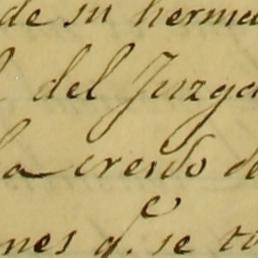 de su herma
l del Juzga
la creido de
nes q.e se to